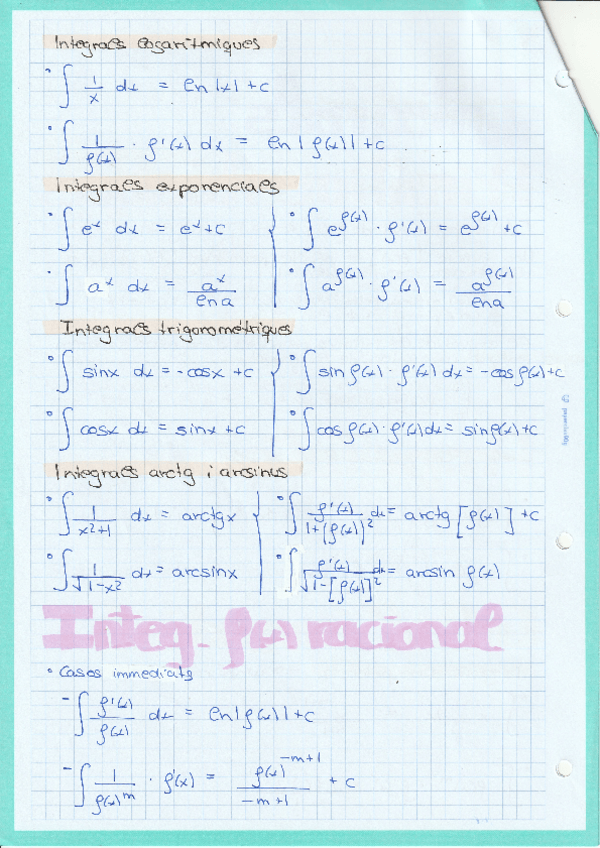 Integrals logarítmiques
• ∫ 1/x dx = ln |x| + c
• ∫ 1/f(x) · f'(x) dx = ln | f(x) | + c
Integrals exponencials
• ∫ eˣ dx = eˣ + c
• ∫ e^f(x) · f'(x) = e^f(x) + c
• ∫ aˣ dx = aˣ/ln a
• ∫ a^f(x) · f'(x) = a^f(x)/ln a
Integrals trigonomètriques
• ∫ sinx dx = -cosx + c
• ∫ sin f(x) · f'(x) dx = -cos f(x) + c
• ∫ cosx dx = sinx + c
• ∫ cos f(x) · f'(x) dx = sin f(x) + c
Integrals arctg i arcsinus
• ∫ 1/(x²+1) dx = arctg x
• ∫ f'(x)/(1+(f(x))²) dx = arctg [f(x)] + c
• ∫ 1/√(1-x²) dx = arcsinx
• ∫ f'(x)/√(1-[f(x)]²) dx = arcsin f(x)
Integ. f(x) racional
• Casos immediats
- ∫ f'(x)/f(x) dx = ln |f(x)| + c
- ∫ 1/f(x)^m · f'(x) = f(x)^(-m+1)/(-m+1) + c